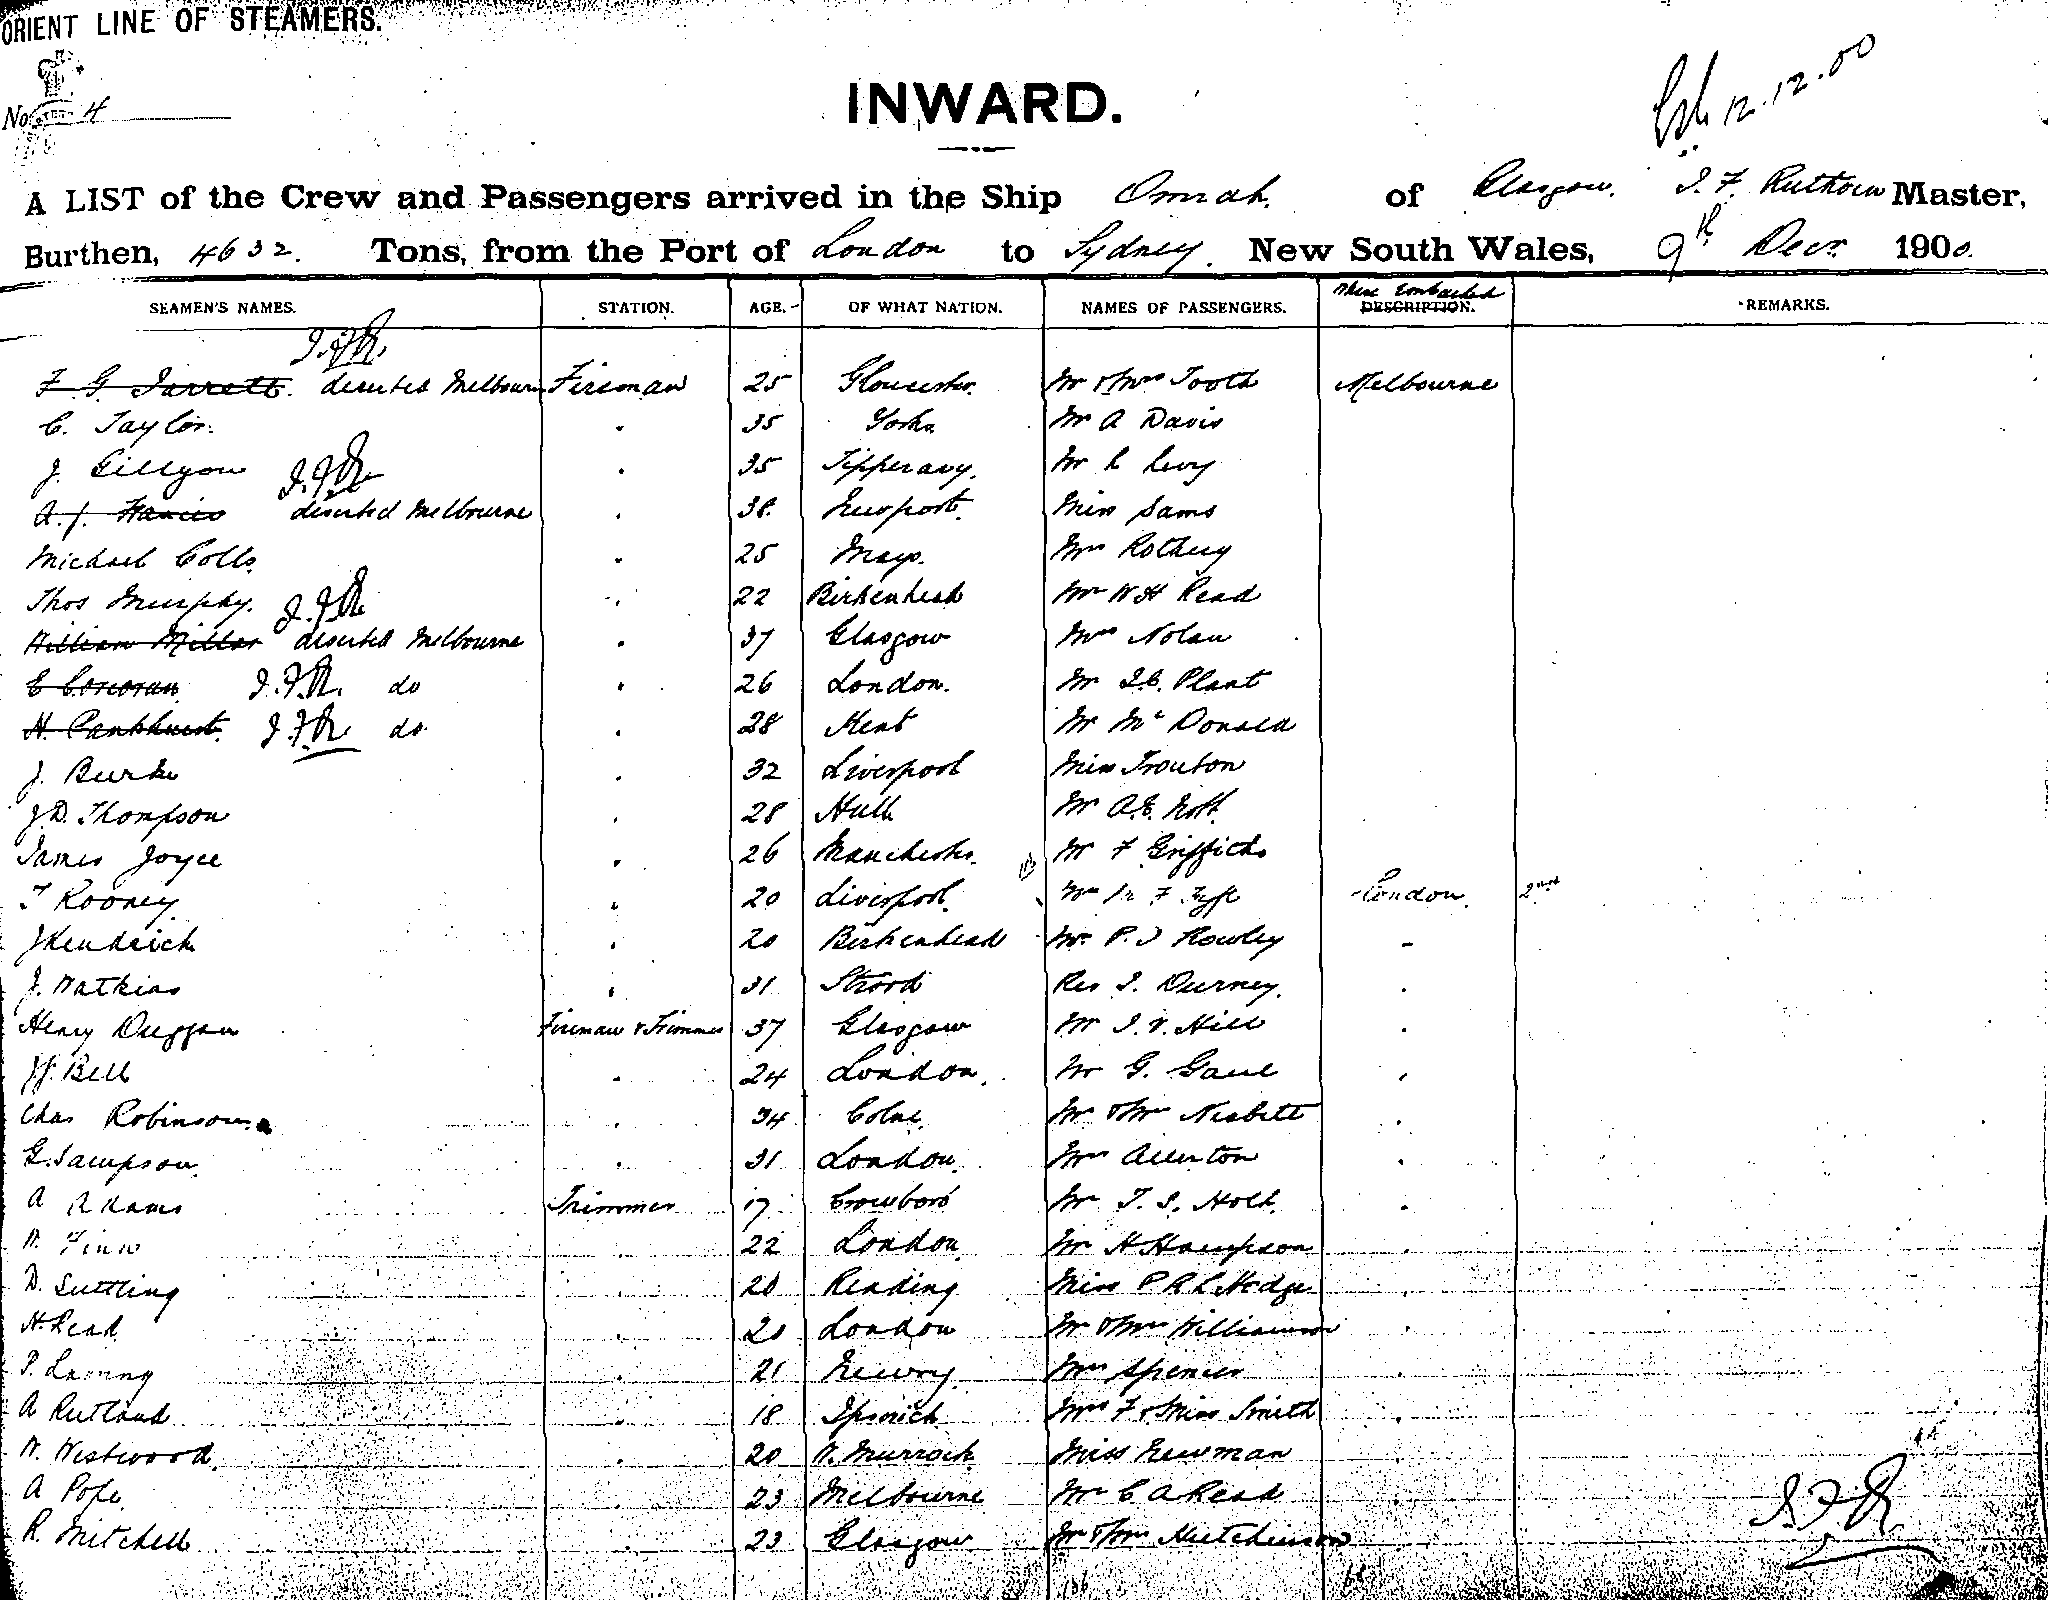 ORIENT LINE OF STEAMERS.
No. 4
INWARD.
12.12.00
A LIST of the Crew and Passengers arrived in the Ship Omrah. of Glasgow. J. F. Ruthven Master,
Burthen, 4632. Tons, from the Port of London to Sydney. New South Wales, 9th Decr. 1900.
SEAMEN'S NAMES. STATION. AGE. OF WHAT NATION. NAMES OF PASSENGERS. Where Embarked DESCRIPTION. REMARKS.
J.F.R.
F. G. Jarrett. deserted Melbourne Fireman 25 Gloucester. Mr & Mrs Tooth Melbourne
C. Taylor. 35 Yorks. Mr A Davis
J. Gillyon J.F.R. 35 Tipperary. Mr L Levy
A. J. deserted Melbourne 38. Newport. Miss Sams
Michael Colls. 25 Mayo. Mrs Rothery
Thos Murphy. J.F.R. 22 Birkenhead Mr W H Read
William Millar deserted Melbourne 37 Glasgow Mrs Nolan
E Corcoran J.F.R. do 26 London. Mr Plant
H. Pankhurst. J.F.R do 28 Kent Mr McDonald
J. Burke 32 Liverpool Miss Trouton
J. D. Thompson 28 Hull Mr A.E. Nott.
James Joyce 26 Manchester. Mr F Griffiths
T Rooney 20 Liverpool. F Fyfe London. 2nd
J Kendrick 20 Birkenhead Mr. P. J Rowley
J. Watkins 31 Strood Rev J. Durney.
Henry Duggan Fireman & Trimmer 37 Glasgow Mr J. V. Hill
J. J. Bell 24 London. Mr G. Gaul
Chas Robinson 34 Colne. Mr & Mrs Nesbitt
G. Sampson. 31 London. Mrs Allerton
A Adams Trimmer 17 Crowboro Mr T. S. Holt.
W. Finn 22 London. Mr H Hampson
D. Suttling 20 Reading Miss P R L Hodge
H. Read. 20 London Mr & Mrs Williamson
P. Laming 21 Newry. Mrs Spencer
A Rutland 18 Ipswich Mrs F & Miss Smith
W. Westwood. 20 Miss Newman
A Pope 23 Melbourne Mr C A Read
R. Mitchell 23 Glasgow Mr & Mrs Hutchinson
J.F.R.